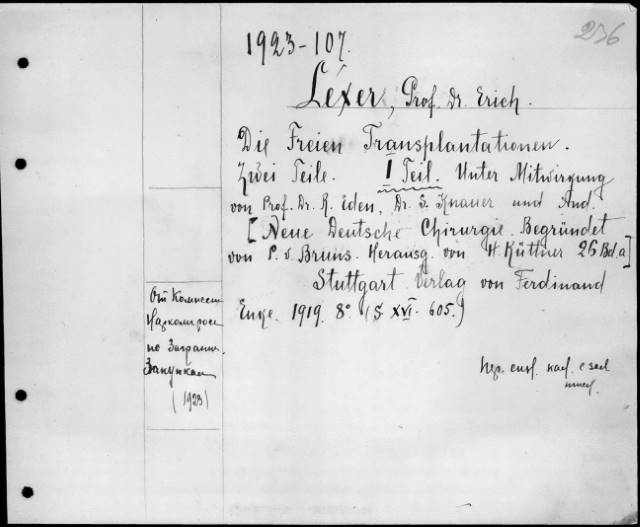 236
1923-107.
Lexer, Prof. Dr. Erich.
Die Freien Transplantationen.
Zwei Teile. I Teil. Unter Mitwirgung
von Prof. Dr. R. Eden, Dr. S. Knauer und And.
[Neue Deutsche Chirurgie. Begründet
von P. v. Bruns. Herausg. von H. Küttner 26 Bd. a]
Stuttgart. Verlag von Ferdinand
Enge. 1919. 8° (S. XVI. 605.)
От Комиссии
Наркомпроса
по Загранич.
Закупкам
(1923)